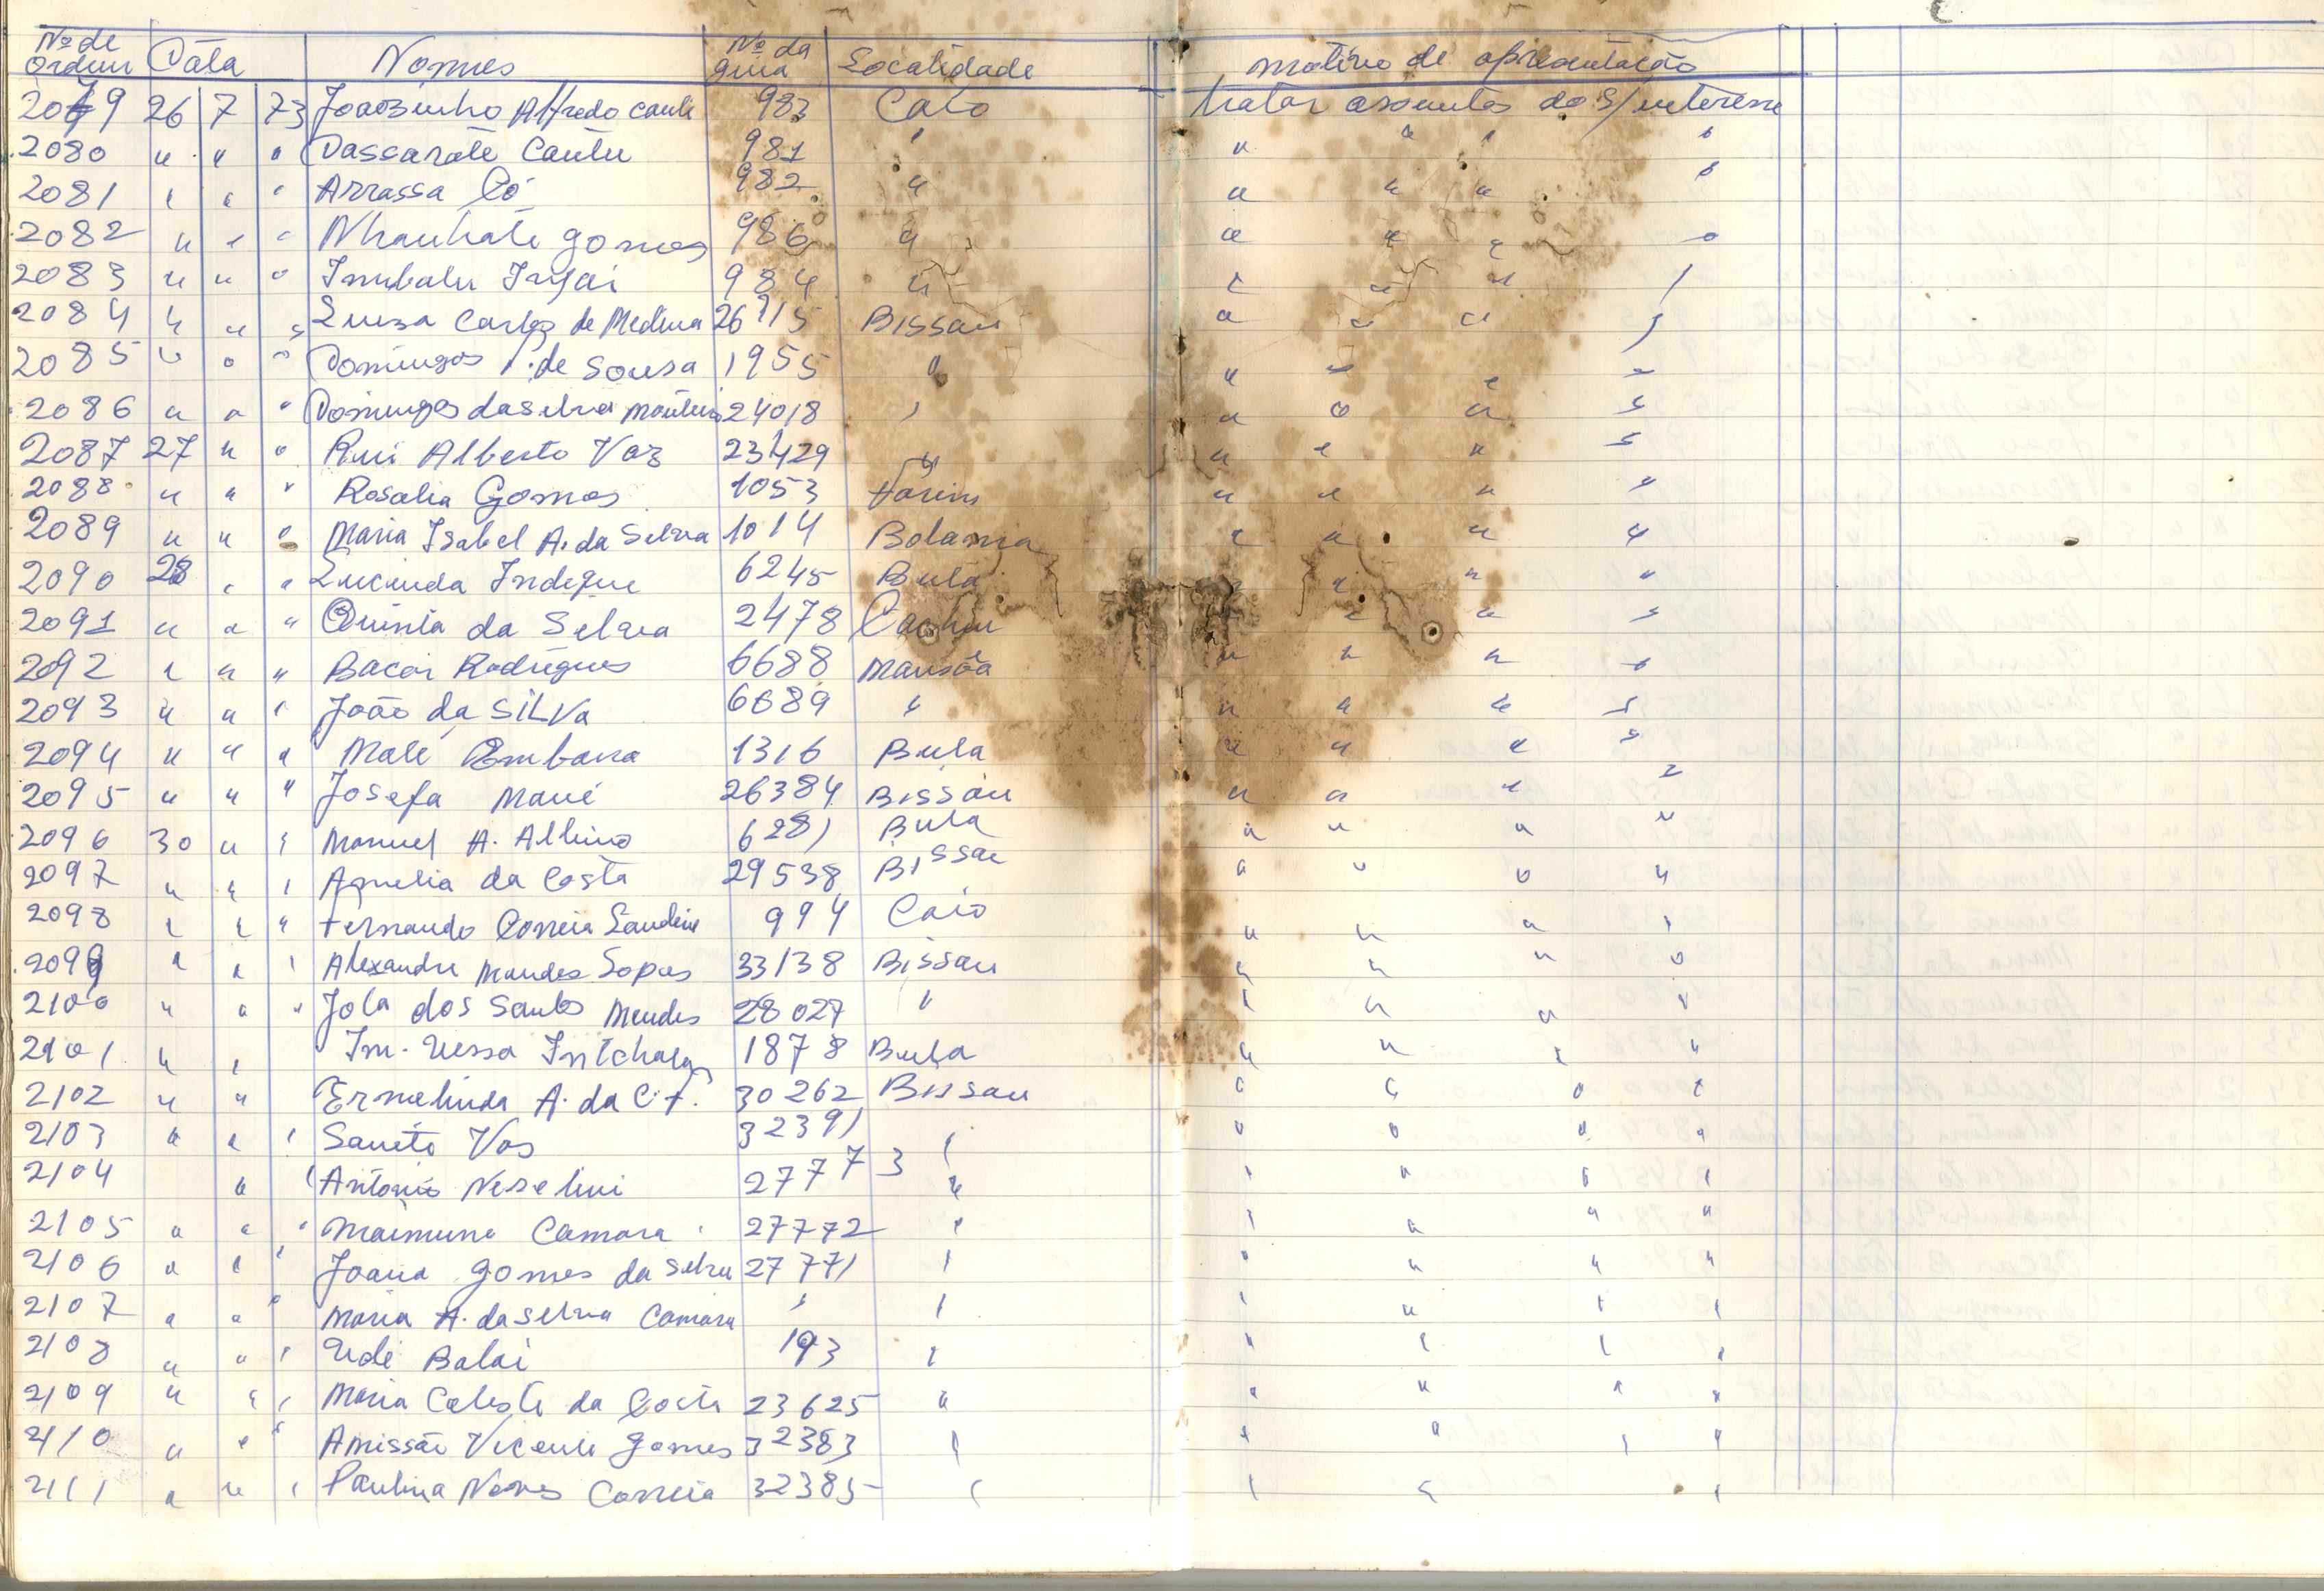 Nº de Ordem Data Nomes Nº da guia Localidade motivo de apresentação
2079 26 7 73 Joaozinho Alfredo Cauli 983 Caio tratar assuntos do S/ interesse
2080 " " " Dascarate Cantu 981 " " " " "
2081 " " " Arrassa Có 982 " " " " "
2082 " " " Nhanhate gomes 986 " " " " "
2083 " " " Imbalu 984 " " " " "
2084 " " " Luiza Carlos de Medina 26115 Bissau " " " "
2085 " " " Domingos de Sousa 1955 " " " " "
2086 " " " Domingos da Silva Monteiro 24018 " " " " "
2087 27 " " Rui Alberto Vaz 23429 " " " " "
2088 " " " Rosalia Gomes 1053 Farim " " " "
2089 " " " Maria Isabel A. da Silva 1014 Bolama " " " "
2090 28 " " Lucinda Indeque 6245 Bula " " " "
2091 " " " Quinta da Silva 2478 Cacheu " " " "
2092 " " " Bacar Rodrigues 6688 Mansôa " " " "
2093 " " " João da SILVa 6689 " " " " "
2094 " " " Malé Embana 1316 Bula " " " "
2095 " " " Josefa Mané 26384 Bissau " " " "
2096 30 " " Manuel A. Albino 6281 Bula " " " "
2097 " " " Amelia da Costa 29538 Bissau " " " "
2098 " " " Fernando Correia Landim 994 Caio " " " "
2099 " " " Alexandre Mendes Lopes 33138 Bissau " " " "
2100 " " " Jola dos Santos Mendes 28027 " " " " "
2101 " " Im-Uessa Intchala 1878 Bula " " " "
2102 " " Ermelinda A. da C. F. 30262 Bissau " " " "
2103 " " " Vas 32391 " " " " "
2104 " " António 27773 " " " " "
2105 " " " Maimuna Camara 27772 " " " " "
2106 " " " Joana gomes da Silva 27771 " " " " "
2107 " " " Maria A. da Silva Camara " " " " " "
2108 " " " Udé Balai 193 " " " " "
2109 " " " Maria Celeste da Costa 23625 " " " " "
2110 " " " Amissão Vicente gomes 32383 " " " " "
2111 " " " Paulina Neves Correia 32385 " " " "